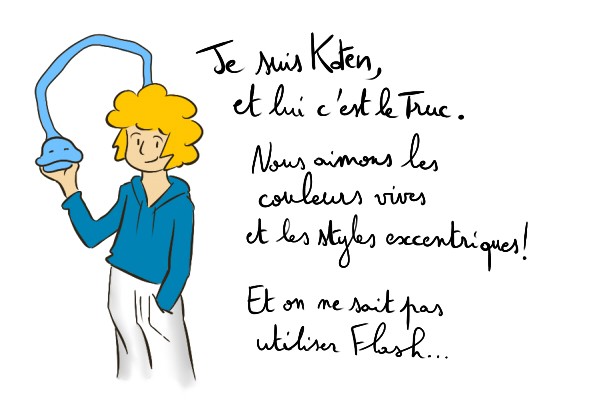 Je suis Koten,
et lui c'est le Truc.
Nous aimons les
couleurs vives
et les styles exccentriques!
Et on ne sait pas
utiliser Flash...